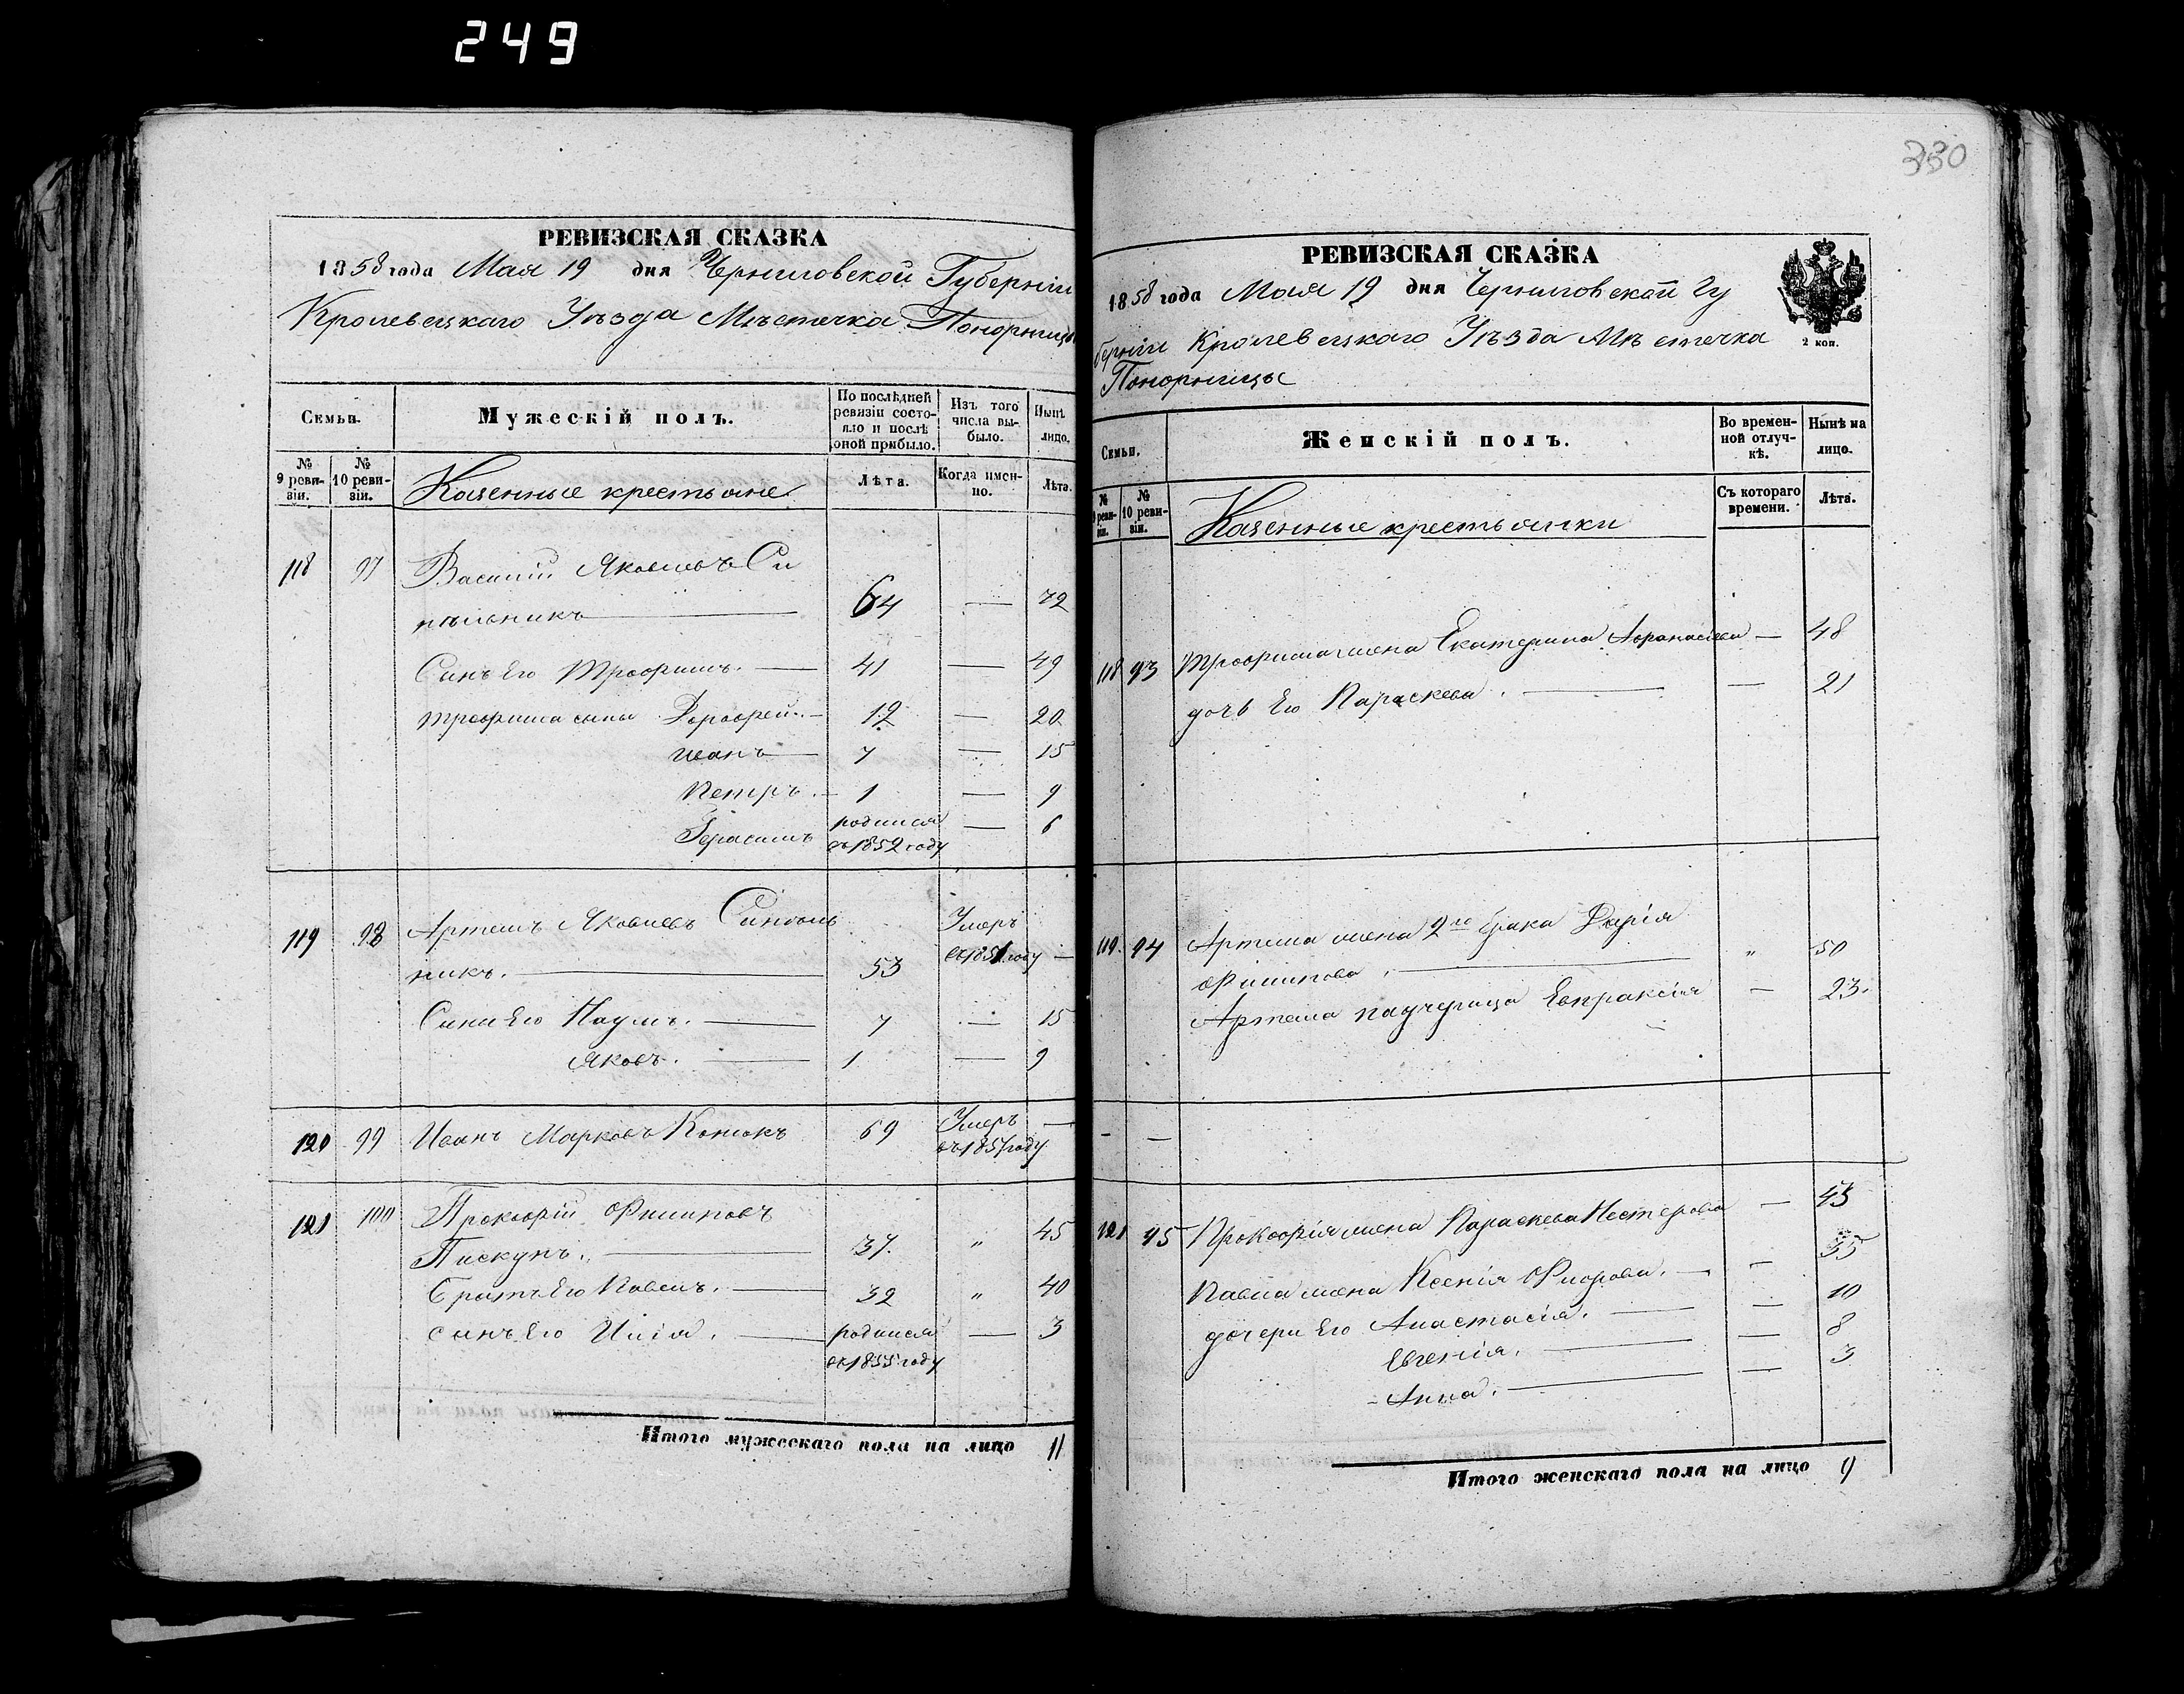 249
РЕВИЗСКАЯ СКАЗКА
1858 года Мая 19 дня Черниговской Губерніи
Кролевецкаго Уѣзда Мѣстечка Понорницы
Семьи.
Мужескій полъ.
По послѣдней ревизіи состояло и послѣ оной прибыло.
Изъ того числа выбыло.
Нынѣ лицо.
№ 9 ревизіи.
№ 10 ревизіи.
Казенные крестьяне
Лѣта.
Когда именно.
Лѣта.
118 97 Василій Яковлевъ Си
нѣльникъ 64 — 72
Сынъ Его Трофимъ. — 41 — 49
Трофима сыны Дорофей. — 12 — 20
Иванъ — 7 — 15
Петръ. — 1 — 9
Герасимъ родился въ 1852 году — 6
119 98 Артемъ Яковлевъ Синѣль
никъ. — 53 Умеръ въ 1851 году —
Сыны Его Наумъ. — 7 — 15
Яковъ. — 1 — 9
120 99 Иванъ Марковъ 69 Умеръ въ 1857 году —
121 100 Прокофій Филиповъ
Пискунъ. — 37. " 45
Братъ Его Павелъ. — 32 " 40
сынъ Его Илія. — родился въ 1855 году — 3
Итого мужескаго пола на лицо 11
330
РЕВИЗСКАЯ СКАЗКА
1858 года Мая 19 дня Черниговской Гу
берніи Кролевецкаго Уѣзда Мѣстечка
Понорницы
2 коп.
Семьи.
Женскій полъ.
Во временной отлучкѣ.
Нынѣ на лицо.
№ 9 ревизіи.
№ 10 ревизіи.
Казенные крестьянки
Съ котораго времени.
Лѣта.
118 93 Трофима жена Екатерина Афанасіева — 48
дочь Его Параскева. — — 21
119. 94 Артема жена 2го брака Дарія
Филипова. — " 50
Артема падчерица Евпраксія — 23.
— —
121 95 Прокофія жена Параскева Нестерова — 43
Павла жена Ксенія Флорова. — — 35
дочери Его Анастасія. — — 10
Евгенія. — — 8
Анна. — — 3
Итого женскаго пола на лицо 9